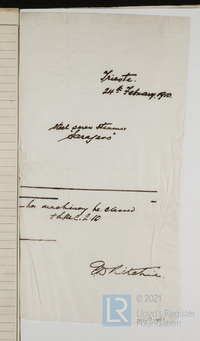 Trieste.
24th February, 1910.
Steel screw steamer
"Sarajevo"
her machinery be classed
2.10.
D Ritchie
© 2021
Lloyd's Register
Foundation